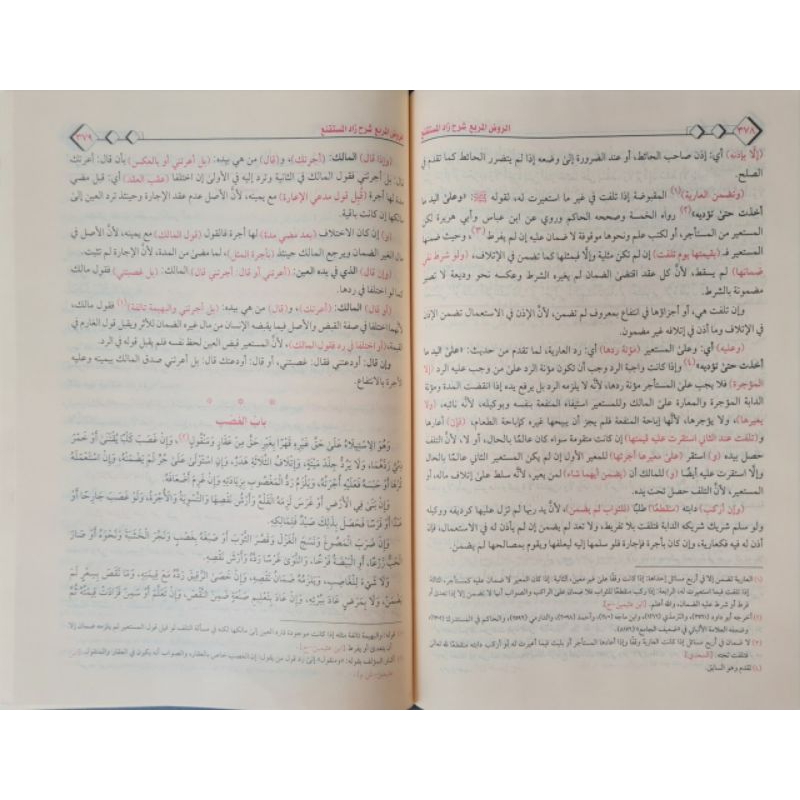 ٣٧٨
الروض المربع شرح زاد المستقنع
(إلَّا بإذنه) أي: إذن صاحب الحائط، أو عند الضرورة إلىٰ وضعه إذا لم يتضرر الحائط كما تقدم في
الصلح.
(وتضمن العارية)(١) المقبوضة إذا تلفت في غير ما استعيرت له، لقوله ﷺ: «وعلىٰ اليد ما
أخذت حتىٰ تؤديه»(٢) رواه الخمسة وصححه الحاكم وروي عن ابن عباس وأبي هريرة لكن
المستعير من المستأجر، أو لكتب علم ونحوها موقوفة لا ضمان عليه إن لم يفرط(٣)، وحيث ضمنها
المستعير فـ (بقيمتها يوم تلفت) إن لم تكن مثلية وإلَّا فبمثلها كما تضمن في الإتلاف، (ولو شرط نفي
ضمانها) لم يسقط، لأنَّ كل عقد اقتضىٰ الضمان لم يغيره الشرط وعكسه نحو وديعة لا تصير
مضمونة بالشرط.
وإن تلفت هي، أو أجزاؤها في انتفاع بمعروف لم تضمن، لأنَّ الإذن في الاستعمال تضمن الإذن
في الإتلاف وما أذن في إتلافه غير مضمون.
(وعليه) أي: وعلىٰ المستعير (مؤنة ردها) أي: رد العارية، لما تقدم من حديث: «علىٰ اليد ما
أخذت حتىٰ تؤديه»(٤) وإذا كانت واجبة الرد وجب أن تكون مؤنة الرد علىٰ من وجب عليه الرد (إلا
المؤجرة) فلا يجب علىٰ المستأجر مؤنة ردها، لأنَّه لا يلزمه الرد بل يرفع يده إذا انقضت المدة ومؤنة
الدابة المؤجرة والمعارة علىٰ المالك وللمستعير استيفاء المنفعة بنفسه وبوكيله، لأنَّه نائبه، (ولا
يعيرها)، ولا يؤجرها، لأنَّها إباحة المنفعة فلم يجز أن يبيحها غيره كإباحة الطعام، (فإن) أعارها
و(تلفت عند الثاني استقرت عليه قيمتها) إن كانت متقومة سواء كان عالمًا بالحال، أو لا، لأنَّ التلف
حصل بيده (و) استقر (علىٰ معيرها أجرتها) للمعير الأول إن لم يكن المستعير الثاني عالمًا بالحال
وإلَّا استقرت عليه أيضًا (و) للمالك أن (يضمن أيهما شاء) لمن المعير، لأنَّه سلط علىٰ إتلاف ماله، أو
المستعير، لأنَّ التلف حصل تحت يده.
(وإن أركب) دابته (منقطعًا) طلبًا (للثواب لم يضمن)، لأنَّ يد ربها لم تزل عليها كرديفه ووكيله
ولو سلم شريك شريكه الدابة فتلفت بلا تفريط، ولا تعد لم يضمن إن لم يأذن له في الاستعمال، فإن
أذن له فيه فكعارية، وإن كان بأجرة فإجارة فلو سلمها إليه ليعلفها ويقوم بمصالحها لم يضمن.
(١) العارية تضمن إلَّا في أربع مسائل
(٤) تقدم وهو السابق.
الروض المربع شرح زاد المستقنع
٣٧٩
(وإذا قال) المالك: (أجرتك)، و(قال) من هي بيده: (بل أعرتني أو بالعكس) بأن قال: أعرتك
قال: بل أجرتني فقول المالك في الثانية وترد إليه في الأولىٰ إن اختلفا (عقب العقد) أي: قبل مضي
لها أجرة (قُبل قول مدعي الإعارة) مع يمينه، لأنَّ الأصل عدم عقد الإجارة وحينئذ ترد العين إلىٰ
مالكها إن كانت باقية.
(و) إن كان الاختلاف (بعد مضي مدة) لها أجرة فالقول (قول المالك) مع يمينه، لأنَّ الأصل في
مال الغير الضمان ويرجع المالك حينئذ (بأجرة المثل)، لما مضىٰ من المدة، لأنَّ الإجارة لم تثبت.
(وإن قال) الذي في يده العين: (أعرتني أو قال: أجرتني قال) المالك: (بل غصبتني) فقول مالك
كما لو اختلفا في ردها.
(أو قال) المالك: (أعرتك)، و(قال) من هي بيده: (بل أجرتني والبهيمة تالفة)(١) فقول مالك،
لأنهما اختلفا في صفة القبض والأصل فيما يقبضه الإنسان من مال غيره الضمان للأثر ويقبل قول الغارم في
القيمة، (أو اختلفا في رد فقول المالك)، لأنَّ المستعير قبض العين لحظ نفسه فلم يقبل قوله في الرد.
وإن قال: أودعتني فقال: غصبتني، أو قال: أودعتك قال: بل أعرتني صدق المالك بيمينه وعليه
الأجرة بالانتفاع.
* * *
باب الغصب
وَهُوَ الِاسْتِيلَاءُ عَلَىٰ حَقِّ غَيرِهِ قَهْرًا بِغَيرِ حَقٍّ مِنْ عَقَارٍ وَمَنقُولٍ(٢)، وَإِنْ غَصَبَ كَلْبًا يُقْتَنَىٰ أَوْ خَمْرَ
ذِمِّيٍّ رَدَّهُمَا، وَلَا يَرُدُّ جِلْدَ مَيْتَةٍ، وَإِتْلَافُ الثَّلَاثَةِ هَدَرٌ، وَإِنِ اسْتَوْلَىٰ عَلَىٰ حُرٍّ لَمْ يَضْمَنْهُ، وَإِنِ اسْتَعْمَلَهُ
كُرْهًا أَوْ حَبَسَهُ فَعَلَيْهِ أُجْرَتُهُ، وَيَلْزَمُ رَدُّ الْمَغْصُوبِ بِزِيَادَتِهِ وَإِنْ غَرِمَ أَضْعَافَهُ.
وَإِنْ بَنَىٰ فِي الْأَرْضِ أَوْ غَرَسَ لَزِمَهُ الْقَلْعُ وَأَرْشُ نَقْصِهَا وَالتَّسْوِيَةُ وَالْأُجْرَةُ، وَلَوْ غَصَبَ جَارِحًا أَوْ
عَبْدًا أَوْ فَرَسًا فَحَصَلَ بِذَلِكَ صَيْدٌ فَلِمَالِكِهِ.
وَإِنْ ضَرَبَ الْمَصُوغَ وَنَسَجَ الْغَزْلَ وَقَصَّرَ الثَّوْبَ أَوْ صَبَغَهُ وَنَجَرَ الْخَشَبَةَ وَنَحْوَهُ أَوْ صَارَ
الْحَبُّ زَرْعًا، أَوِ الْبَيْضَةُ فَرْخًا، وَالنَّوَىٰ غَرْسًا رَدَّهُ وَأَرْشَ نَقْصِهِ.
وَلَا شَيْءَ لِلْغَاصِبِ، وَيَلْزَمُهُ ضَمَانُ نَقْصِهِ، وَإِنْ خَصَىٰ الرَّقِيقَ رَدَّهُ مَعَ قِيمَتِهِ، وَمَا نَقَصَ بِسِعْرٍ لَمْ
يُضْمَنْ، وَلَا بِمَرَضٍ عَادَ بِبُرْئِهِ، وَإِنْ عَادَ بِتَعْلِيمِ صَنْعَةٍ ضَمِنَ النَّقْصَ، وَإِنْ تَعَلَّمَ أَوْ سَمِنَ فَزَادَتْ قِيمَتُهُ ثُمَّ